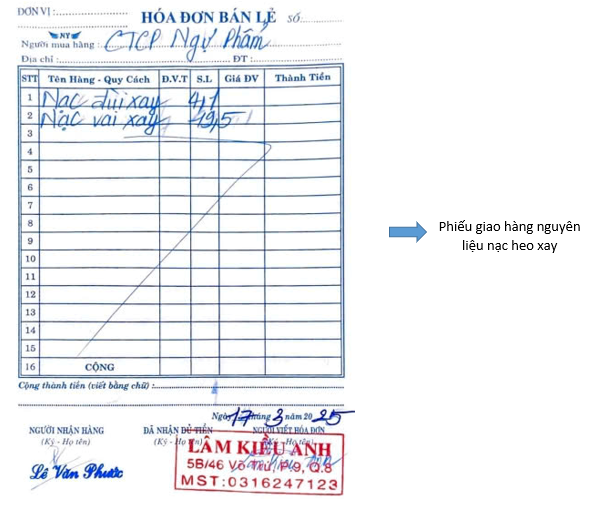 ĐƠN VỊ :
HÓA ĐƠN BÁN LẺ SỐ
NY
Người mua hàng : CTCP Ngự Phẩm
Địa chỉ : ĐT :
STT Tên Hàng - Quy Cách Đ.V.T S.L Giá ĐV Thành Tiền
1 Nạc đùi xay 4,1
2 Nạc vai xay 19,5
3
4
5
6
7
8
9
10
11
12
13
14
15
16 CỘNG
Cộng thành tiền (viết bằng chữ) :
Ngày 17 tháng 3 năm 2025
NGƯỜI NHẬN HÀNG ĐÃ NHẬN ĐỦ TIỀN NGƯỜI VIẾT HÓA ĐƠN
(Ký - Họ tên) (Ký - Họ tên) (Ký - Họ tên)
Lê Văn Phước
LÂM KIỀU ANH
5B/46 Võ Trứ, P.9, Q.8
MST:0316247123
Phiếu giao hàng nguyên
liệu nạc heo xay